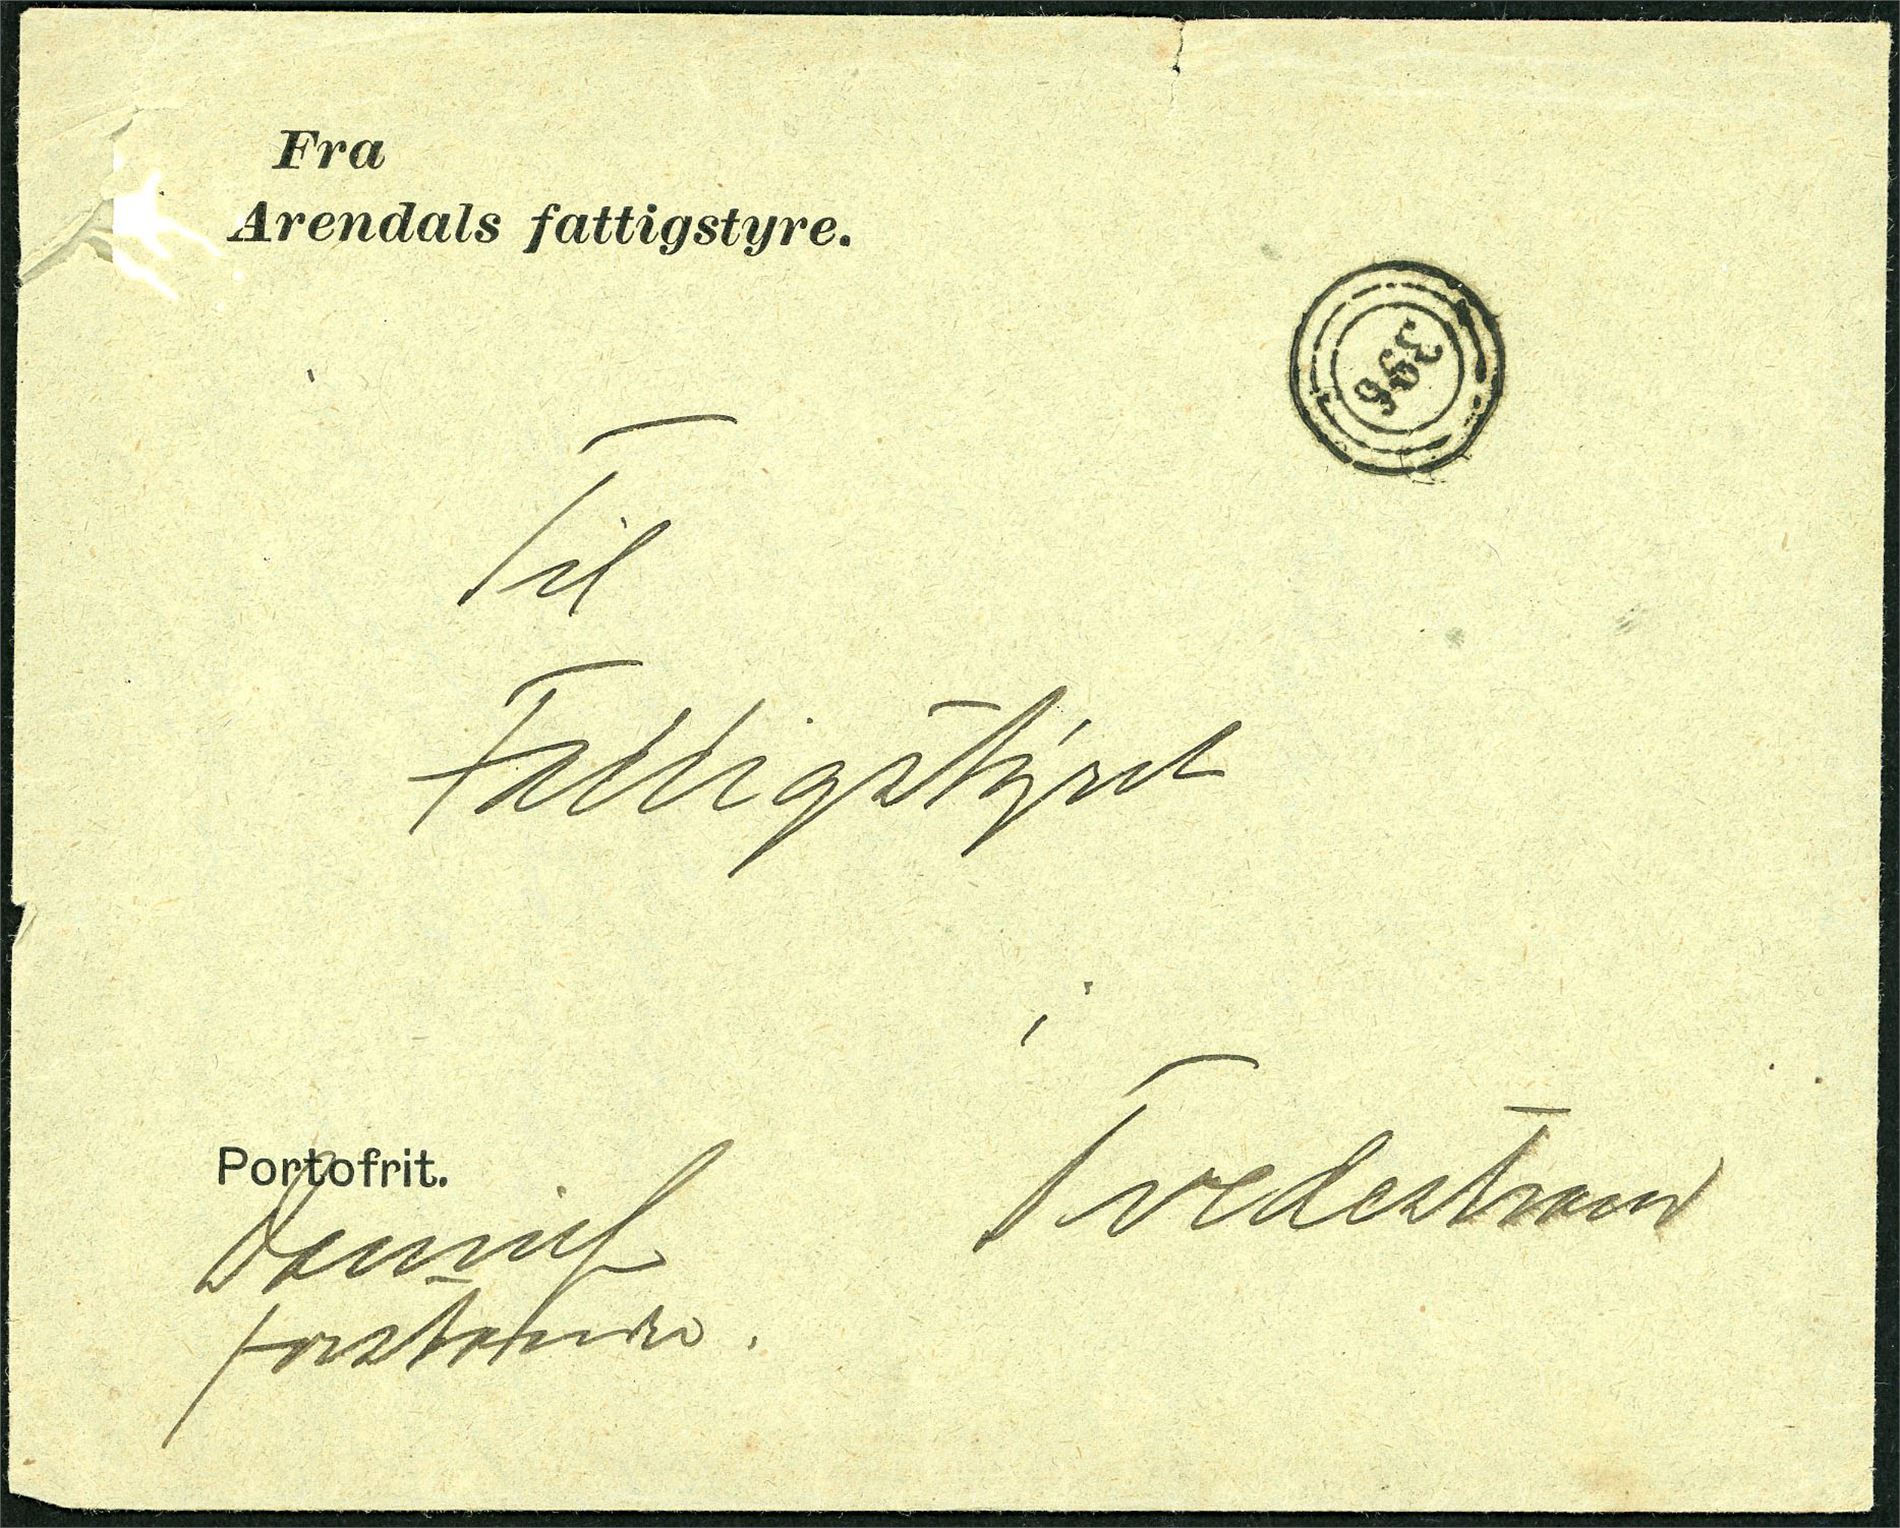 Fra
Arendals fattigstyre.
396
Til
Fattigstyret
i
Tvedestrand
Portofrit.
forstander.